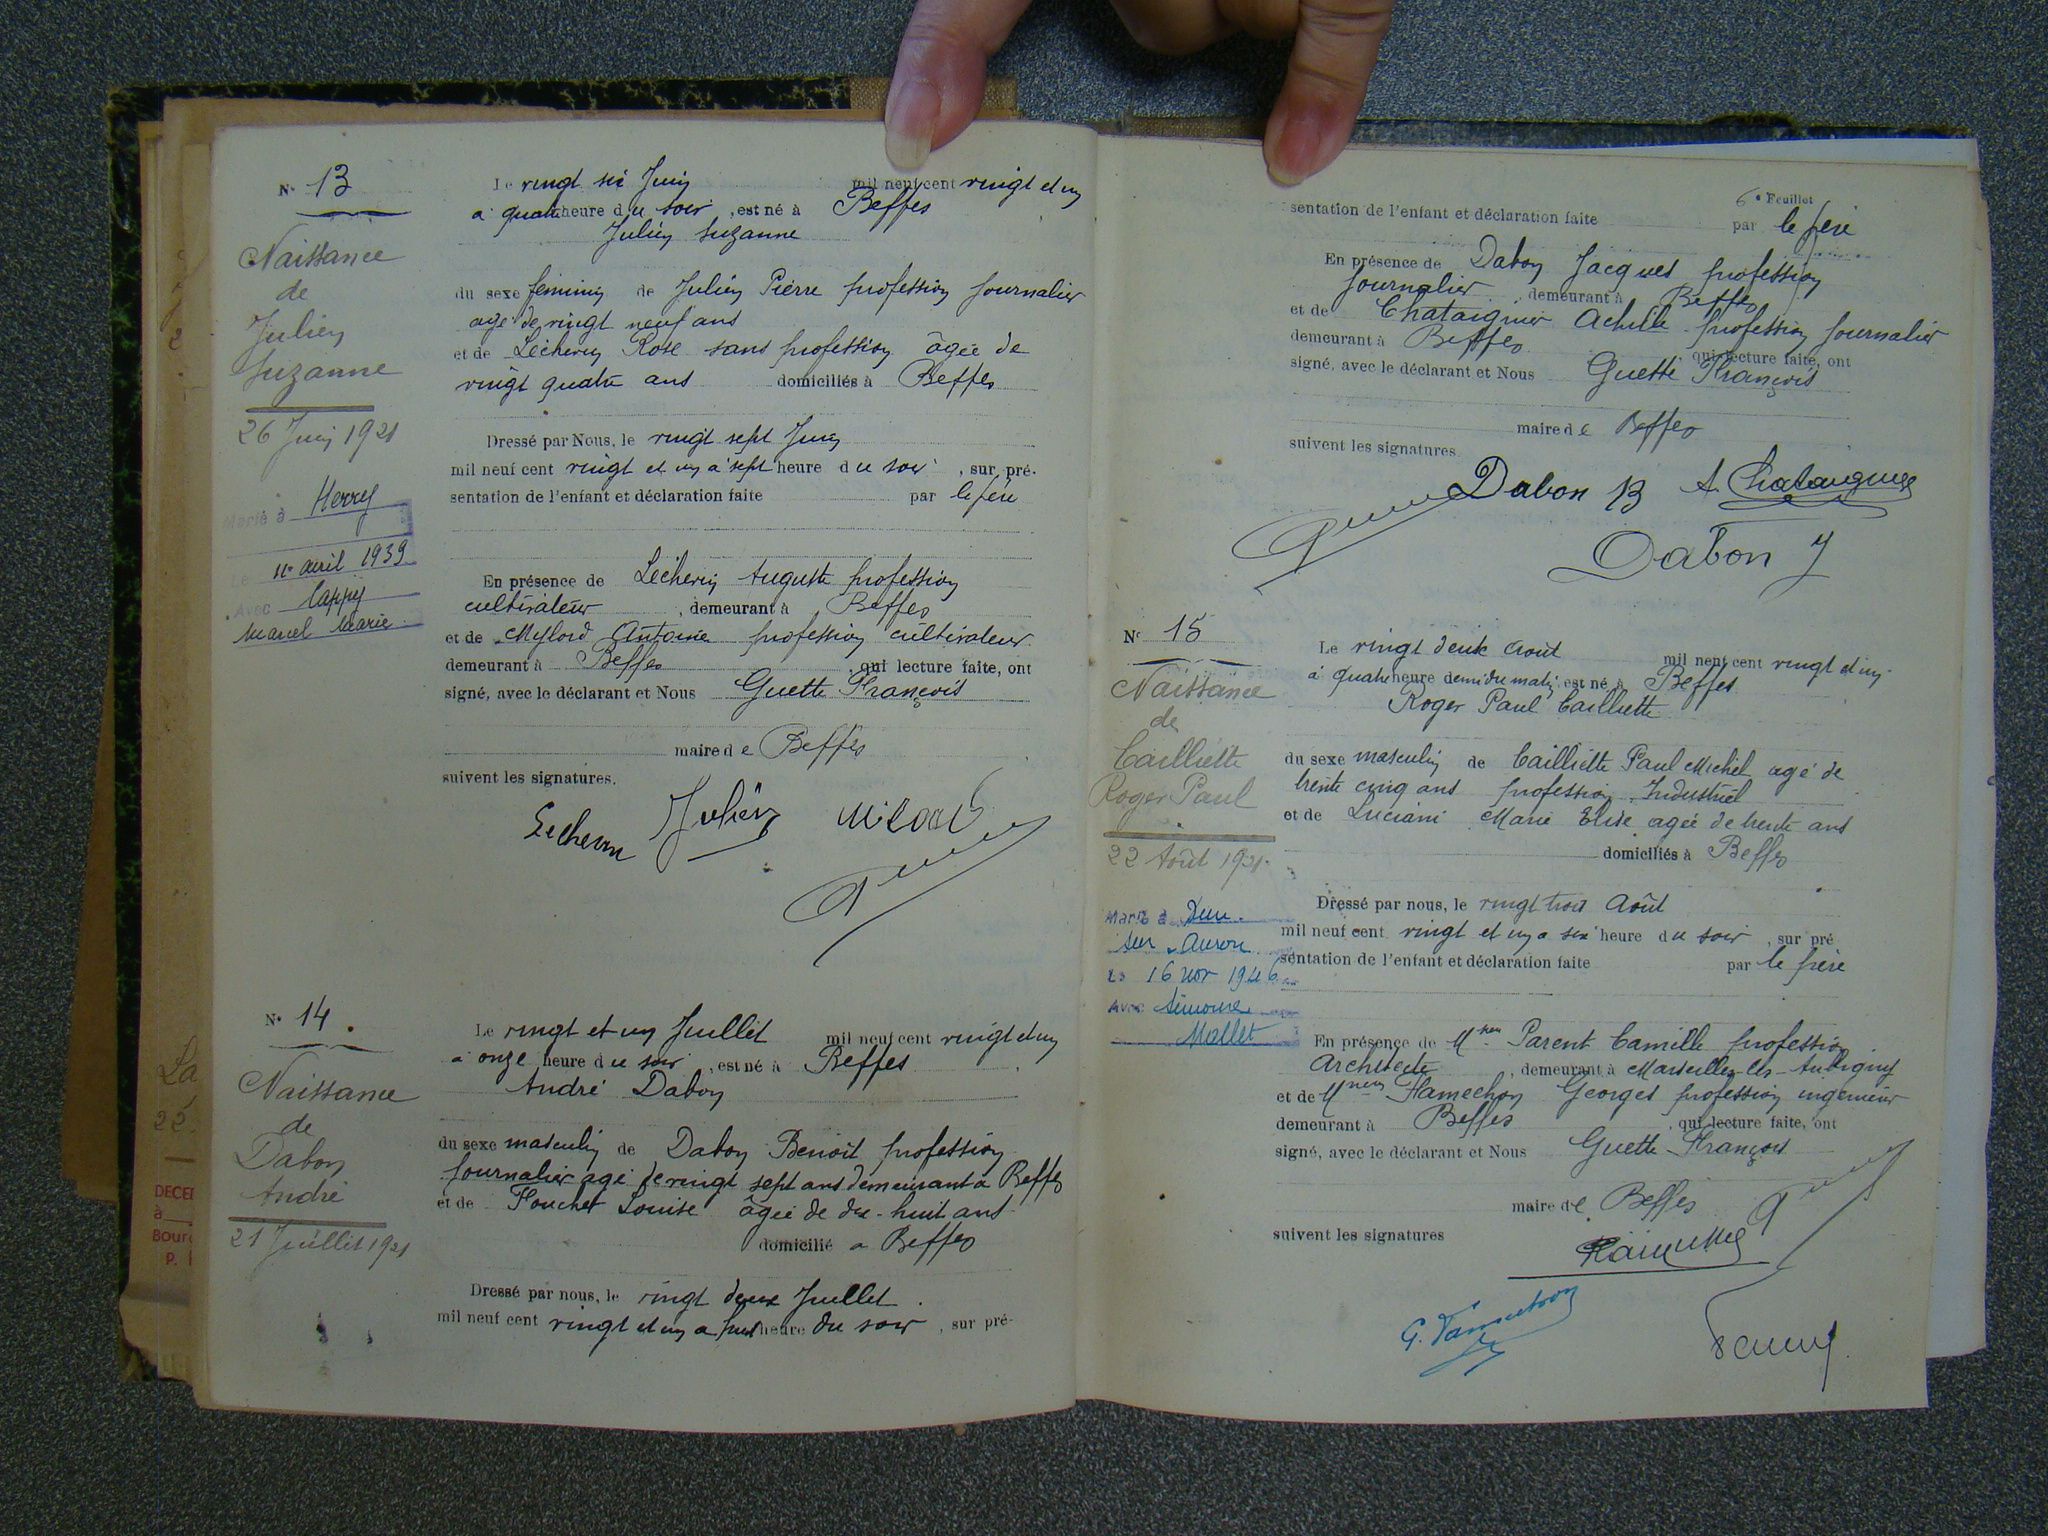 N° 13
Naissance
de
Julien
Suzanne
26 Juin 1921
Marié à Herry
Le 11 avril 1939
Avec Cappy
Marcel Marie
Le vingt six Juin mil neuf cent vingt et un
à quatre heure du soir, est né à Beffes
Julien Suzanne
du sexe féminin de Julien Pierre profession journalier
agé de vingt neuf ans
et de Lecherin Rose sans profession âgée de
vingt quatre ans domiciliés à Beffes
Dressé par Nous, le vingt sept Juin
mil neuf cent vingt et un à sept heure du soir, sur pré-
sentation de l'enfant et déclaration faite par le père
En présence de Lecherin Auguste profession
cultivateur, demeurant à Beffes
et de Mylord Antoine profession cultivateur
demeurant à Beffes, qui lecture faite, ont
signé, avec le déclarant et Nous Guette François
maire de Beffes
suivent les signatures.
Lecherin Julien
N° 14
Naissance
de
Dabon
André
21 Juillet 1921
Le vingt et un Juillet mil neuf cent vingt et un
à onze heure du soir, est né à Beffes
André Dabon
du sexe masculin de Dabon Benoit profession
journalier agé de vingt sept ans demeurant à Beffes
et de Fouchet Louise âgée de dix-huit ans
domicilié a Beffes
Dressé par nous, le vingt deux Juillet
mil neuf cent vingt et un a huit heure du soir, sur pré-
6e Feuillet
sentation de l'enfant et déclaration faite par le père
En présence de Dabon Jacques profession
journalier, demeurant à Beffes
et de Chataignier Achille profession journalier
demeurant à Beffes, qui lecture faite, ont
signé, avec le déclarant et Nous Guette François
maire de Beffes
suivent les signatures.
Dabon B A. Chataignier
Dabon J
N° 15
Naissance
de
Cailliette
Roger Paul
22 Août 1921
Marié à Dun
sur Auron
Le 16 nov 1946
Avec Simone
Mallet
Le vingt deux Août mil neuf cent vingt et un
à quatre heure demi du matin, est né à Beffes
Roger Paul Cailliette
du sexe masculin de Cailliette Paul Michel agé de
trente cinq ans profession Industriel
et de Luciani Marie Elise agée de trente ans
domiciliés à Beffes
Dressé par nous, le vingt trois Août
mil neuf cent vingt et un a six heure du soir, sur pré
sentation de l'enfant et déclaration faite par le père
En présence de Parent Camille profession
Architecte, demeurant à Marseilles-les-Aubigny
et de Hamechon Georges profession ingénieur
demeurant à Beffes, qui lecture faite, ont
signé, avec le déclarant et Nous Guette François
maire de Beffes
suivent les signatures